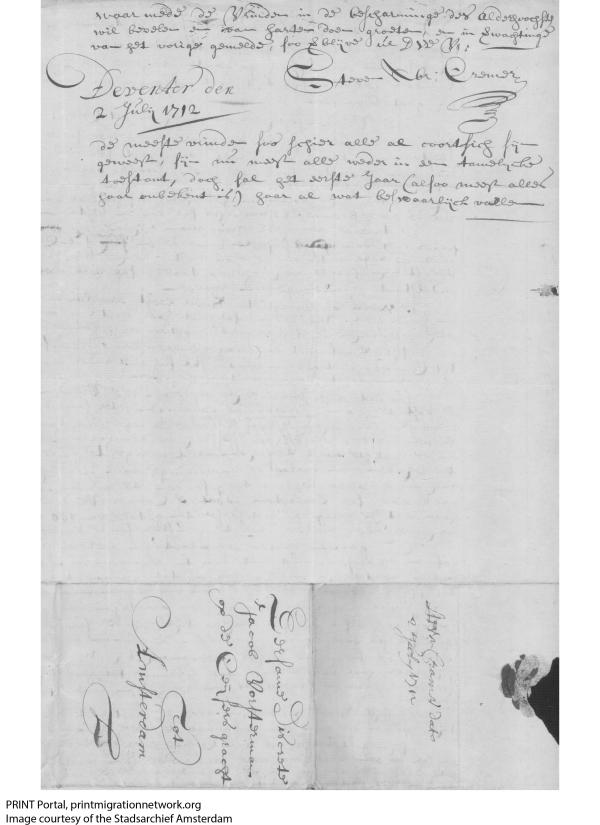 waar mede de Vrinden in de bescharminge des Alderhoochste
wil bevelen en van harten doen groeten, en in verwachtinge
van het vorige gemelde, soo verblijve ick
Steven Abr: Cremer
Deventer den
2 Julij 1712
de meeste vrinden soo schier alle al coortsich sijn
geweest, sijn nu meest alle weder in een tamelycke
toestant, doch sal het eerste Jaar (alsoo meest alles
haar onbekent is) haar al wat beswaarlijck vallen
Eersame Discrete
Jacob Vorsterman
op de Keijsers graght
Tot
Amsterdam
2 July 1712
PRINT Portal, printmigrationnetwork.org
Image courtesy of the Stadsarchief Amsterdam